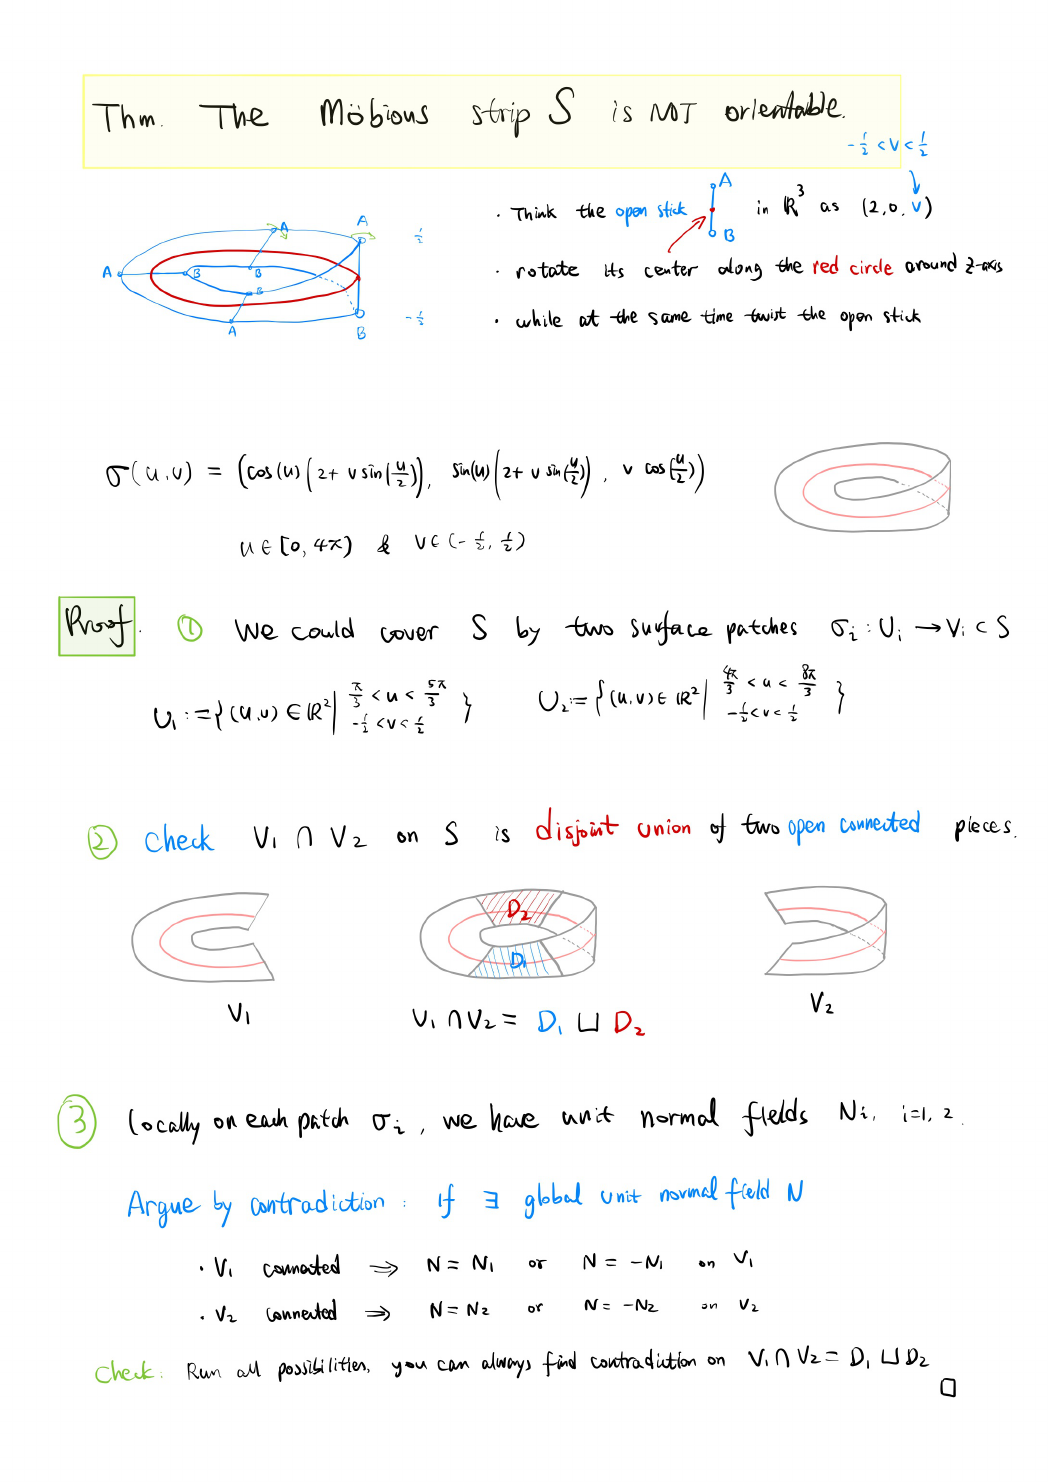 Thm. The Möbious strip S is NOT orientable.
-½ < v < ½
· Think the open stick A B in ℝ³ as (2, 0, v)
· rotate its center along the red circle around z-axis
· while at the same time twist the open stick
A A A B B B A B
½
-½
σ(u,v) = (cos(u)(2+ v sin(u/2)), sin(u)(2+ v sin(u/2)), v cos(u/2))
u ∈ [0, 4π) & v ∈ (-½, ½)
Proof. ① We could cover S by two surface patches σᵢ : Uᵢ → Vᵢ ⊂ S
U₁ := {(u,v) ∈ ℝ² | π/3 < u < 5π/3 -½ < v < ½ }
U₂ := {(u,v) ∈ ℝ² | 4π/3 < u < 8π/3 -½ < v < ½ }
② check V₁ ∩ V₂ on S is disjoint union of two open connected pieces.
D₂
D₁
V₁
V₁ ∩ V₂ = D₁ ⊔ D₂
V₂
③ locally on each patch σᵢ, we have unit normal fields Nᵢ, i=1, 2.
Argue by contradiction : If ∃ global unit normal field N
· V₁ connected ⇒ N = N₁ or N = -N₁ on V₁
· V₂ connected ⇒ N = N₂ or N = -N₂ on V₂
Check: Run all possibilities, you can always find contradiction on V₁ ∩ V₂ = D₁ ⊔ D₂
□